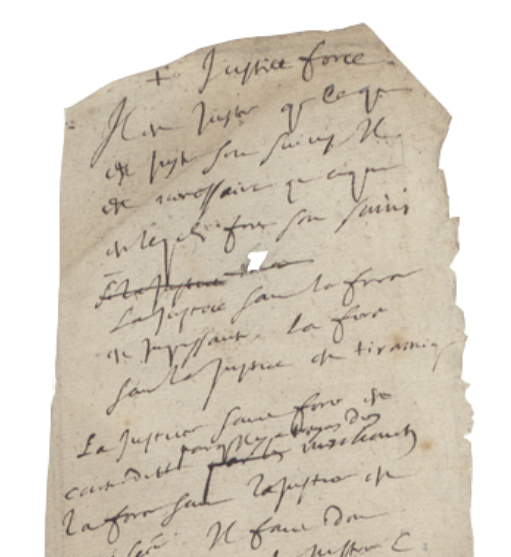 + Justice force.
Il est juste que ce qui
est juste soit suivy. Il
est necessaire que ce qui
est le plus fort soit suivi
La justice sans la force
est impuissante. La force
sans la justice est tiranniq
La justice sans force est
contreditte parce qu'il y a toujours des
meschants
la force sans la justice est
Il faut donc
justice &